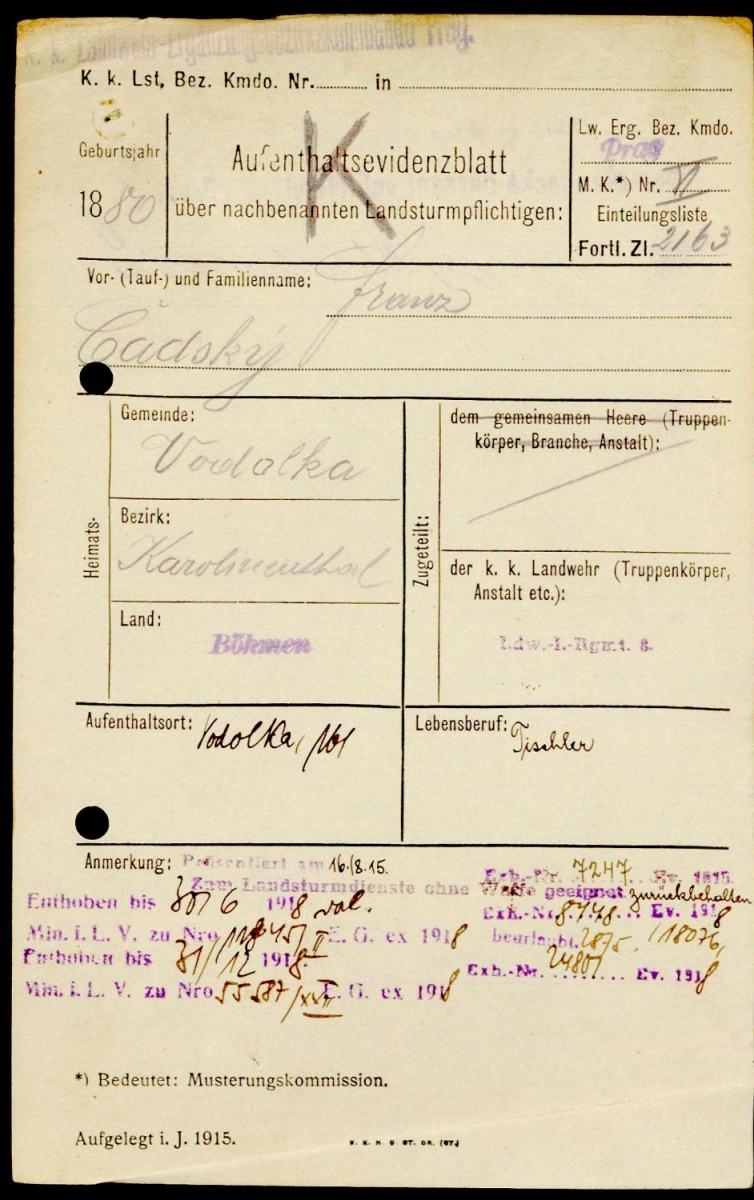 K. k. Landwehr-Ergänzungsbezirkskommando Prag.
K. k. Lst. Bez. Kmdo. Nr. in
Geburtsjahr
1880
Aufenthaltsevidenzblatt
K
über nachbenannten Landsturmpflichtigen:
Lw. Erg. Bez. Kmdo.
Prag
M. K.*) Nr. VI
Einteilungsliste
Fortl. Zl. 2163
Vor- (Tauf-) und Familienname: Franz
Čadský
Heimats-
Gemeinde:
Vodolka
Bezirk:
Karolinenthal
Land:
Böhmen
Zugeteilt:
dem gemeinsamen Heere (Truppen-
körper, Branche, Anstalt):
der k. k. Landwehr (Truppenkörper,
Anstalt etc.):
Ldw.-I.-Rgmt. 8.
Aufenthaltsort: Vodolka, 161
Lebensberuf: Tischler
Anmerkung: Präsentiert am 16./8.15. Exh.-Nr. 7247 Ev. 1915.
Zum Landsturmdienste ohne Waffe geeignet zurückbehalten
Enthoben bis 30/6 1918 Exh.-Nr. 8748 Ev. 1918
Min. f. L. V. zu Nro E. G. ex 1918 beurlaubt 2875, /18076,
Enthoben bis 31/12 1918. Exh.-Nr. 24801 Ev. 1918
Min. f. L. V. zu Nro 55587/XXII E. G. ex 1918
*) Bedeutet: Musterungskommission.
Aufgelegt i. J. 1915.